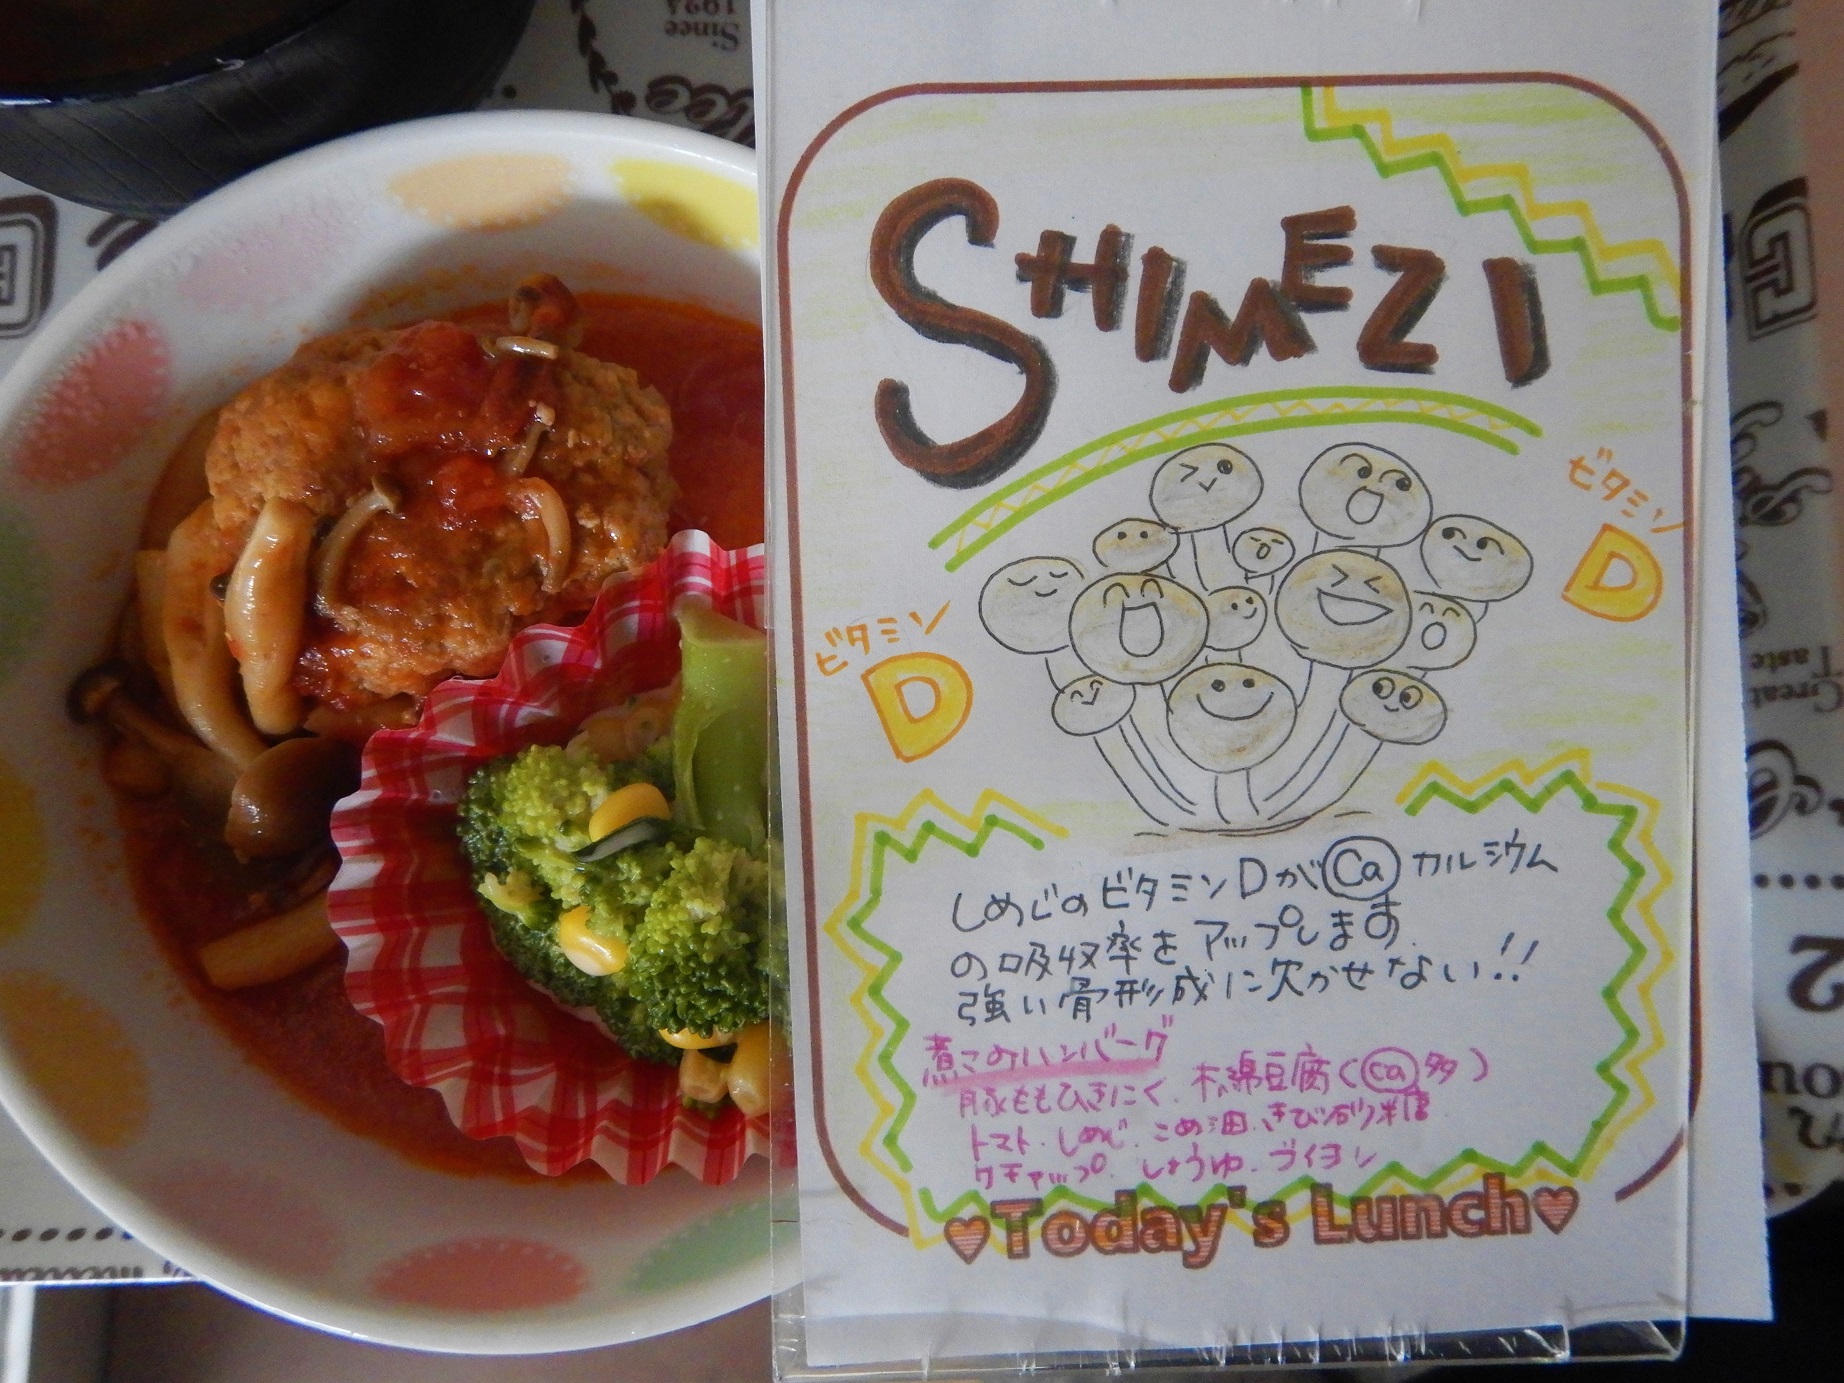 Since
1924
SHIMEZI
ビタミン
D
ビタミン
D
しめじのビタミンDがCaカルシウム
の吸収率をアップします
強い骨形成に欠かせない!!
煮こみハンバーグ
豚ももひきにく.木綿豆腐(Ca多)
トマト.しめじ.こめ油.きび砂糖
ケチャップ.しょうゆ.ブイヨン
♥Today's Lunch♥
Great
Taste